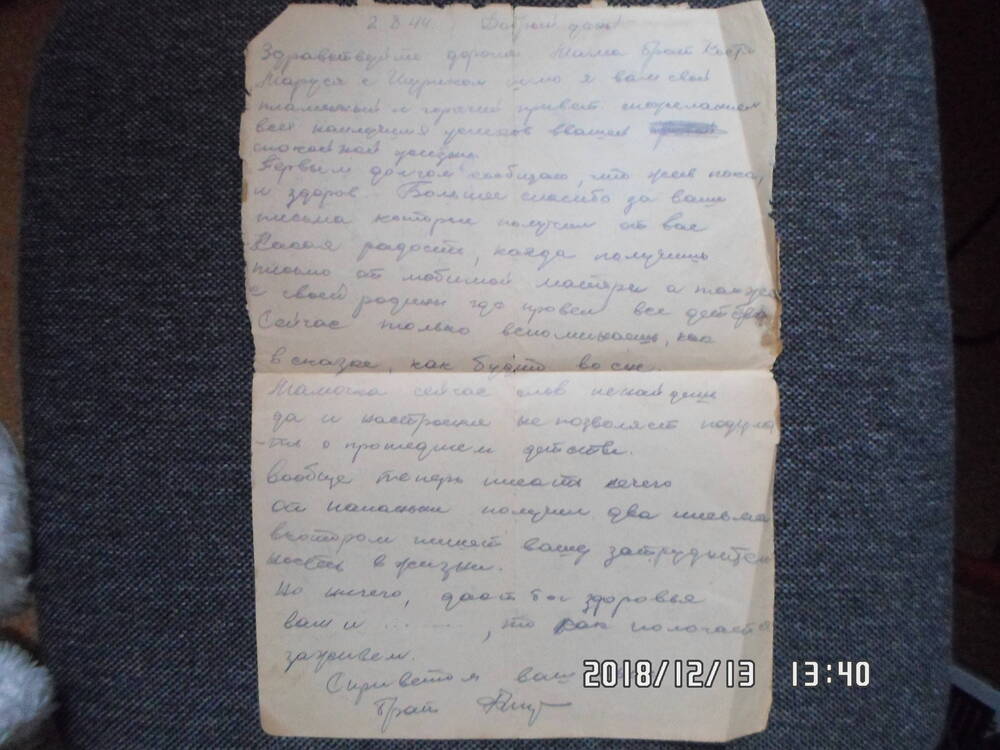 2.8.44. Добрый день!
Здравствуйте дорогие Мама брат Костя
Маруся с Шуриком шлю я вам свой
пламенный и горячий привет спожеланием
всех наилучших успехов ввашей
спокойной жизни.
Первым долгом сообщаю, что жив пока,
и здоров. Большое спасибо за ваши
письма которые получил от вас
Какая радость, когда получишь
письмо от любимой матери а также
с своей родины где провел все детство
Сейчас только вспоминаешь, как
в сказке, как будто во сне.
Мамочка сейчас слов ненайдешь
да и настроение не позволяет подума
-ть о прошедшем детстве.
вообще теперь писать нечего
от папаньки получил два письма
вкотором пишет вашу
в жизни.
Но ничего, даст бог здоровья
вам и ........, то как
заживем.
Сприветом ваш
брат
2018/12/13 13:40